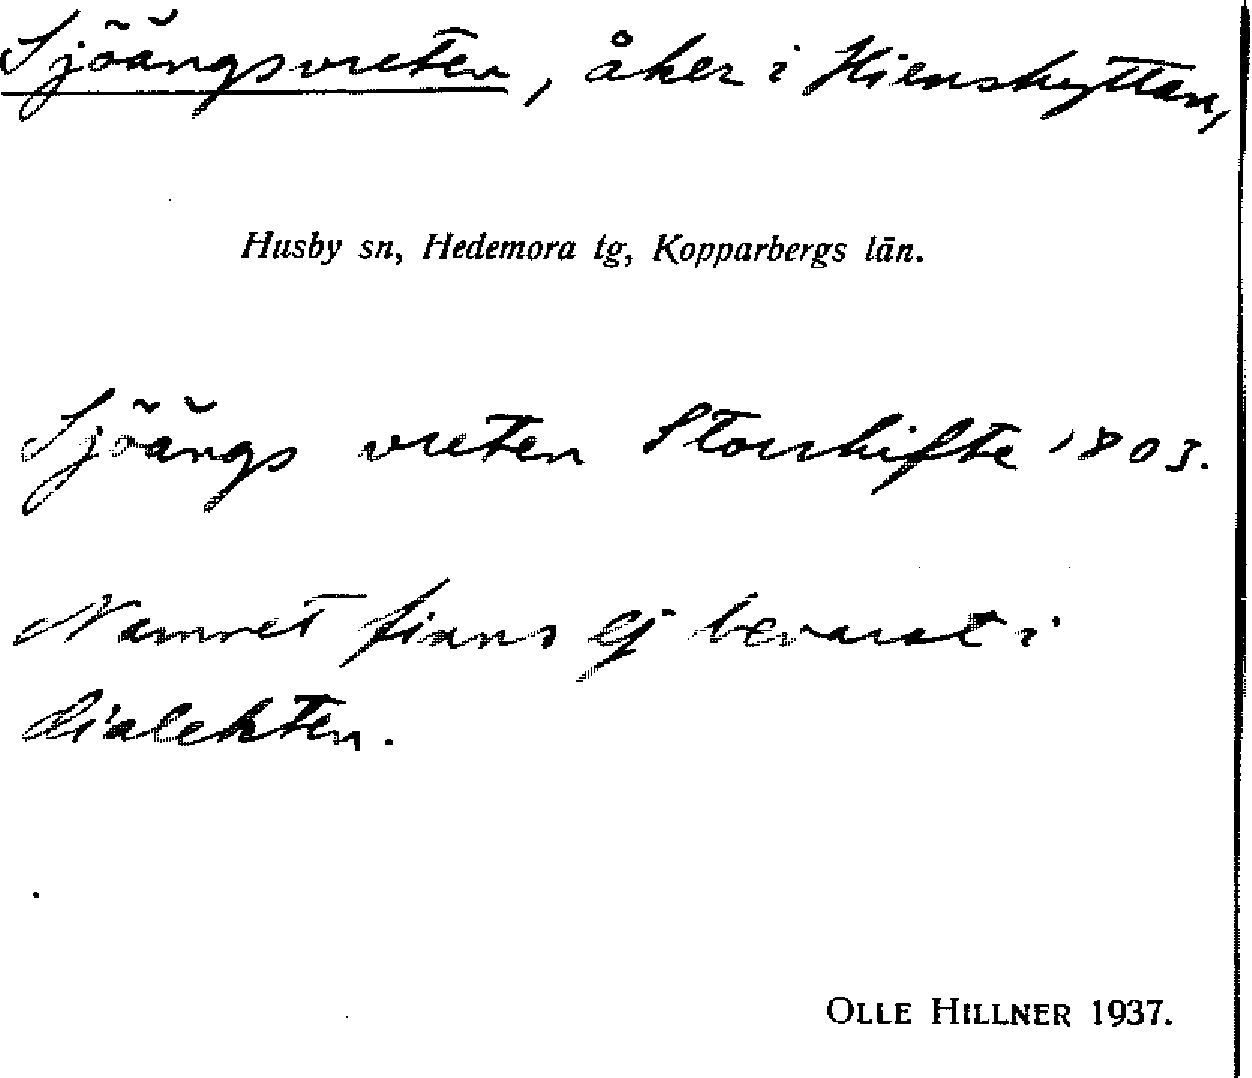 Sjöängsvreten, åker i Hienshyttan,
Husby sn, Hedemora tg, Kopparbergs län.
Sjöängs vreten Storskifte 1803.
Namnet finns ej bevarat i
dialekten.
OLLE HILLNER 1937.